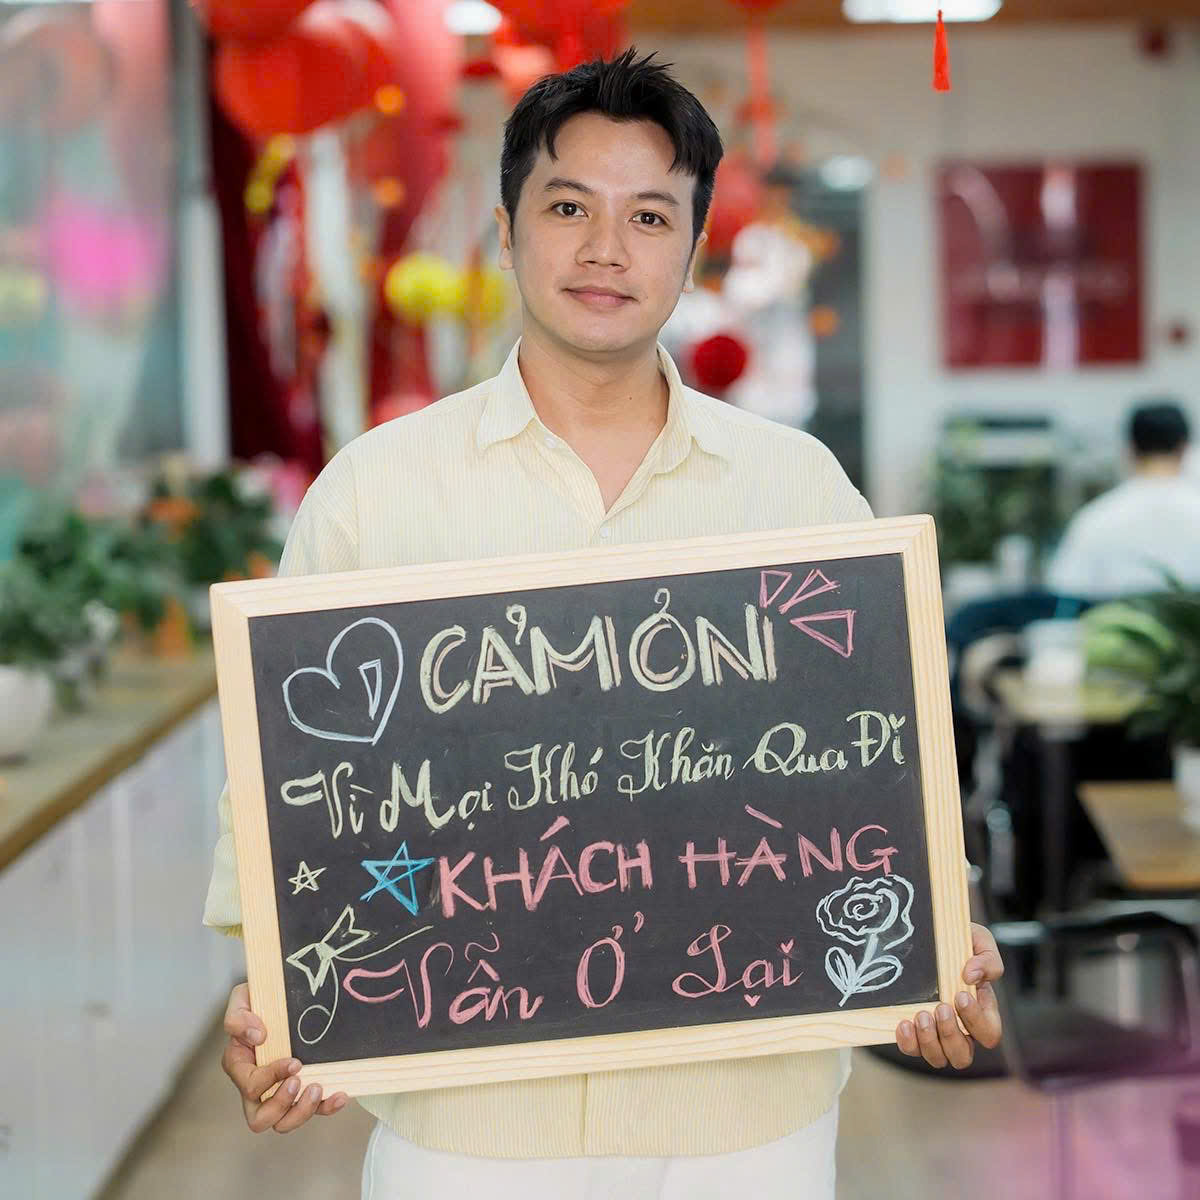 CẢM ỎN
Vì Mọi Khó Khăn Qua Đi
KHÁCH HÀNG
Vẫn Ở Lại